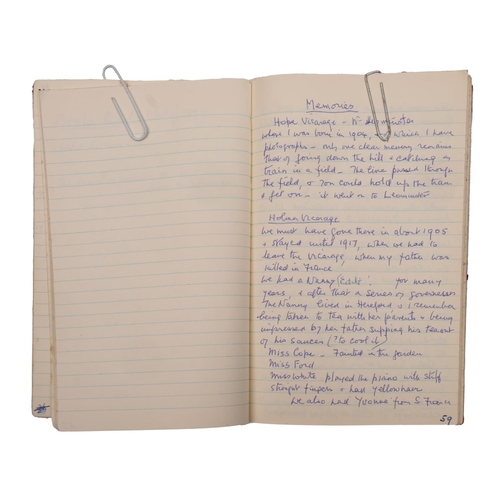 Memories
Hope Vicarage - Nr Leominster
where I was born in 1904, & of which I have
photographs - only one clear memory remains
that of going down the hill & catching a
train in a field - The line passed through
the field, & you could hold up the train
& get on - it went on to Leominster
Holmer Vicarage
We must have gone there in about 1905
& stayed until 1917, when we had to
leave the Vicarage, when my father was
killed in France
We had a Nanny for many
years, & after that a series of governesses
The Nanny lived in Hereford & I remember
being taken to tea with her parents & being
impressed by her father supping his tea out
of his saucer (? to cool it)
Miss Cope - Fainted in the garden
Miss Ford
Miss White played the piano with stiff
straight fingers & had yellow hair
We also had Yvonne from S. France
59